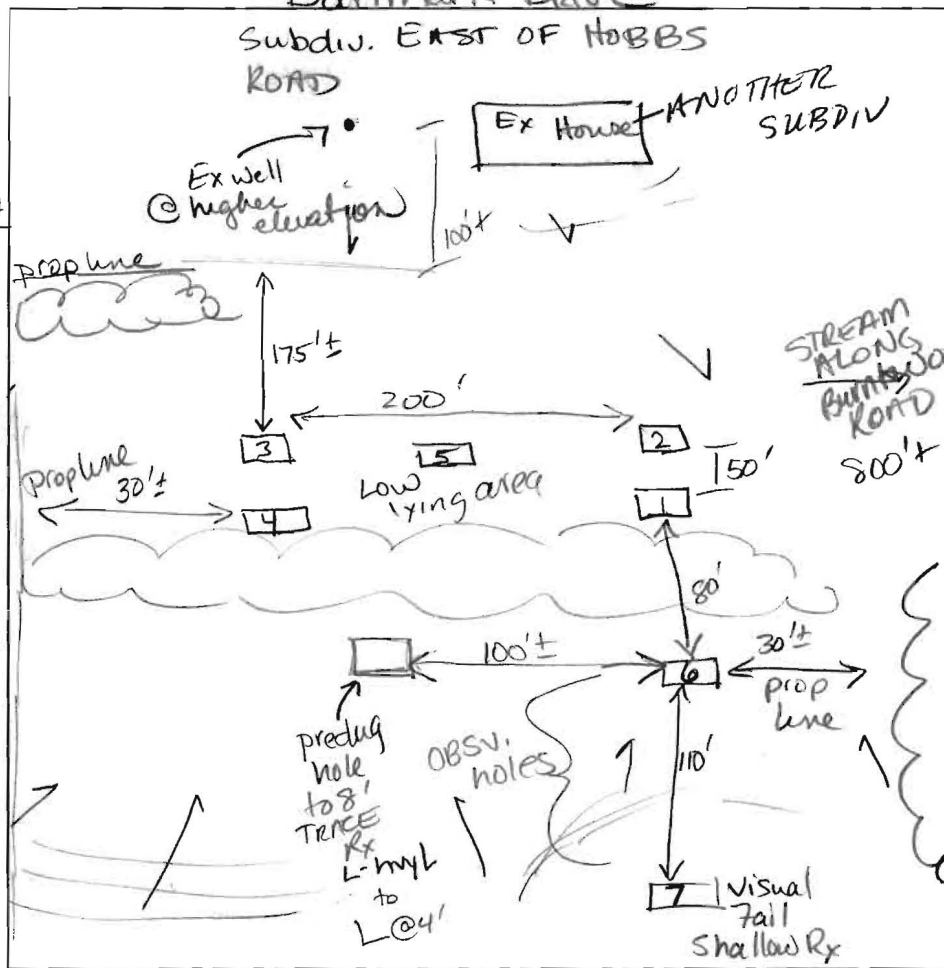 Subdiv. EAST OF HOBBS
ROAD
Ex House
ANOTHER
SUBDIV
Ex well
@ higher
elevation
100'±
prop line
175'±
STREAM
ALONG
ROAD
800'±
200'
3
2
5
50'
Low
lying area
prop line
30'±
4
1
80'
100'±
6
30'±
prop
line
predug
hole
to 8'
TRACE
Rx
L-hvyL
to
L@4'
OBSV.
holes
110'
7
Visual
Fail
Shallow Rx